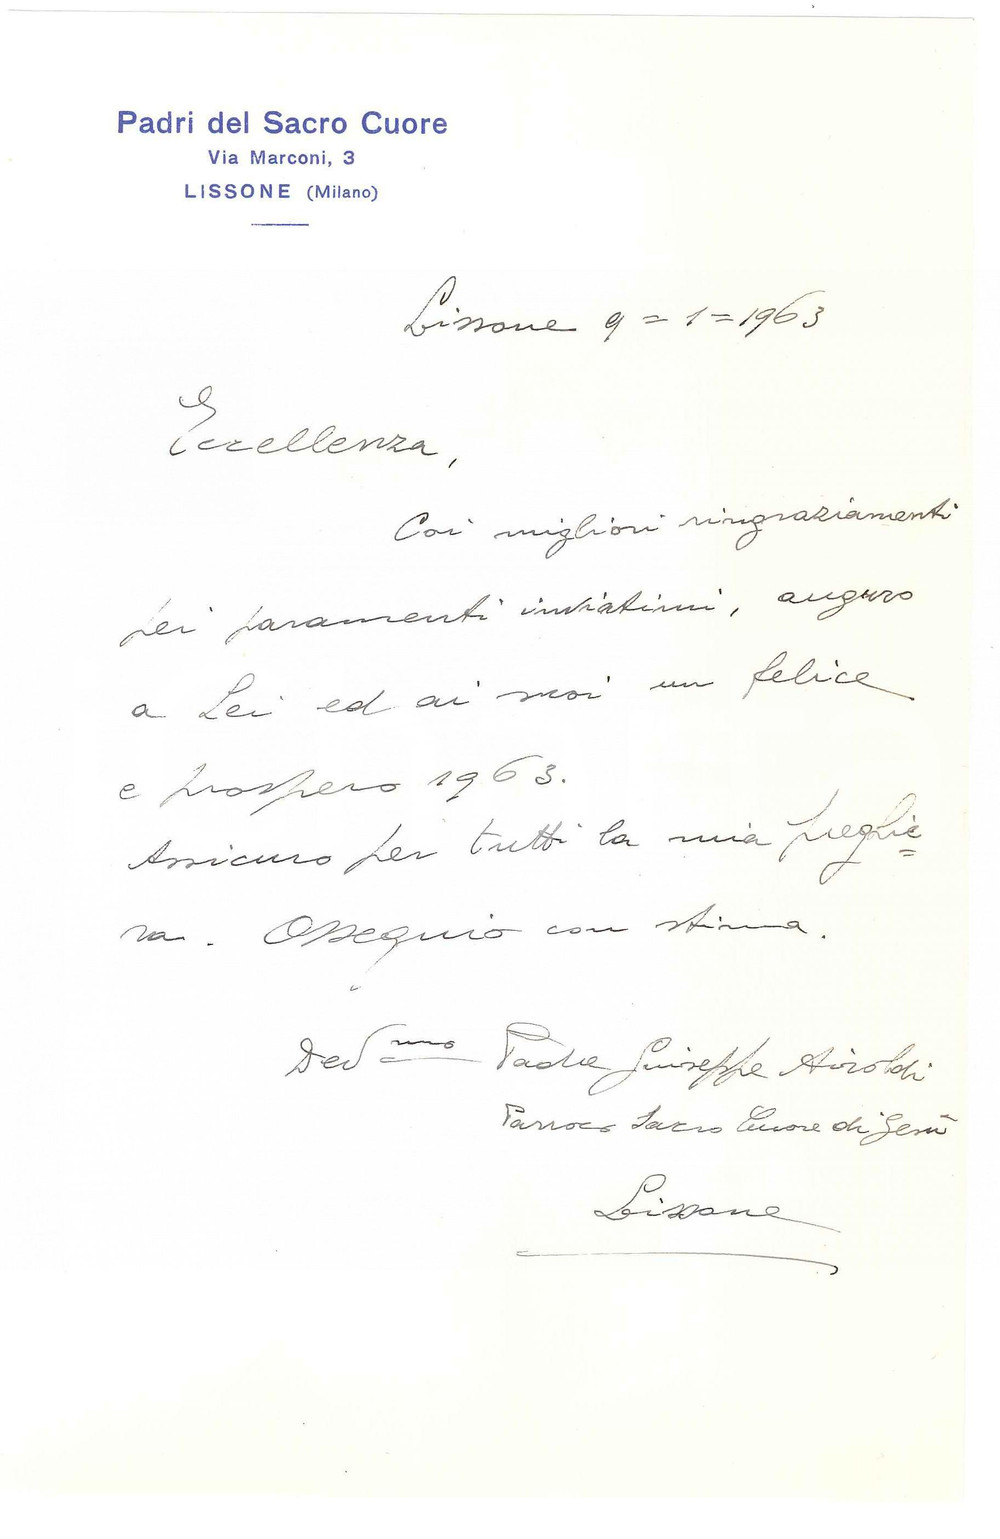 Padri del Sacro Cuore
Via Marconi, 3
LISSONE (Milano)
Lissone 9 = 1 = 1963
Eccellenza,
Coi migliori ringraziamenti
pei paramenti inviatimi, auguro
a Lei ed ai suoi un felice
e prospero 1963.
Assicuro per tutti la mia preghie=
ra. Ossequio con stima.
Dev.mo Padre Giuseppe Airoldi
Parroco Sacro Cuore di Gesù
Lissone